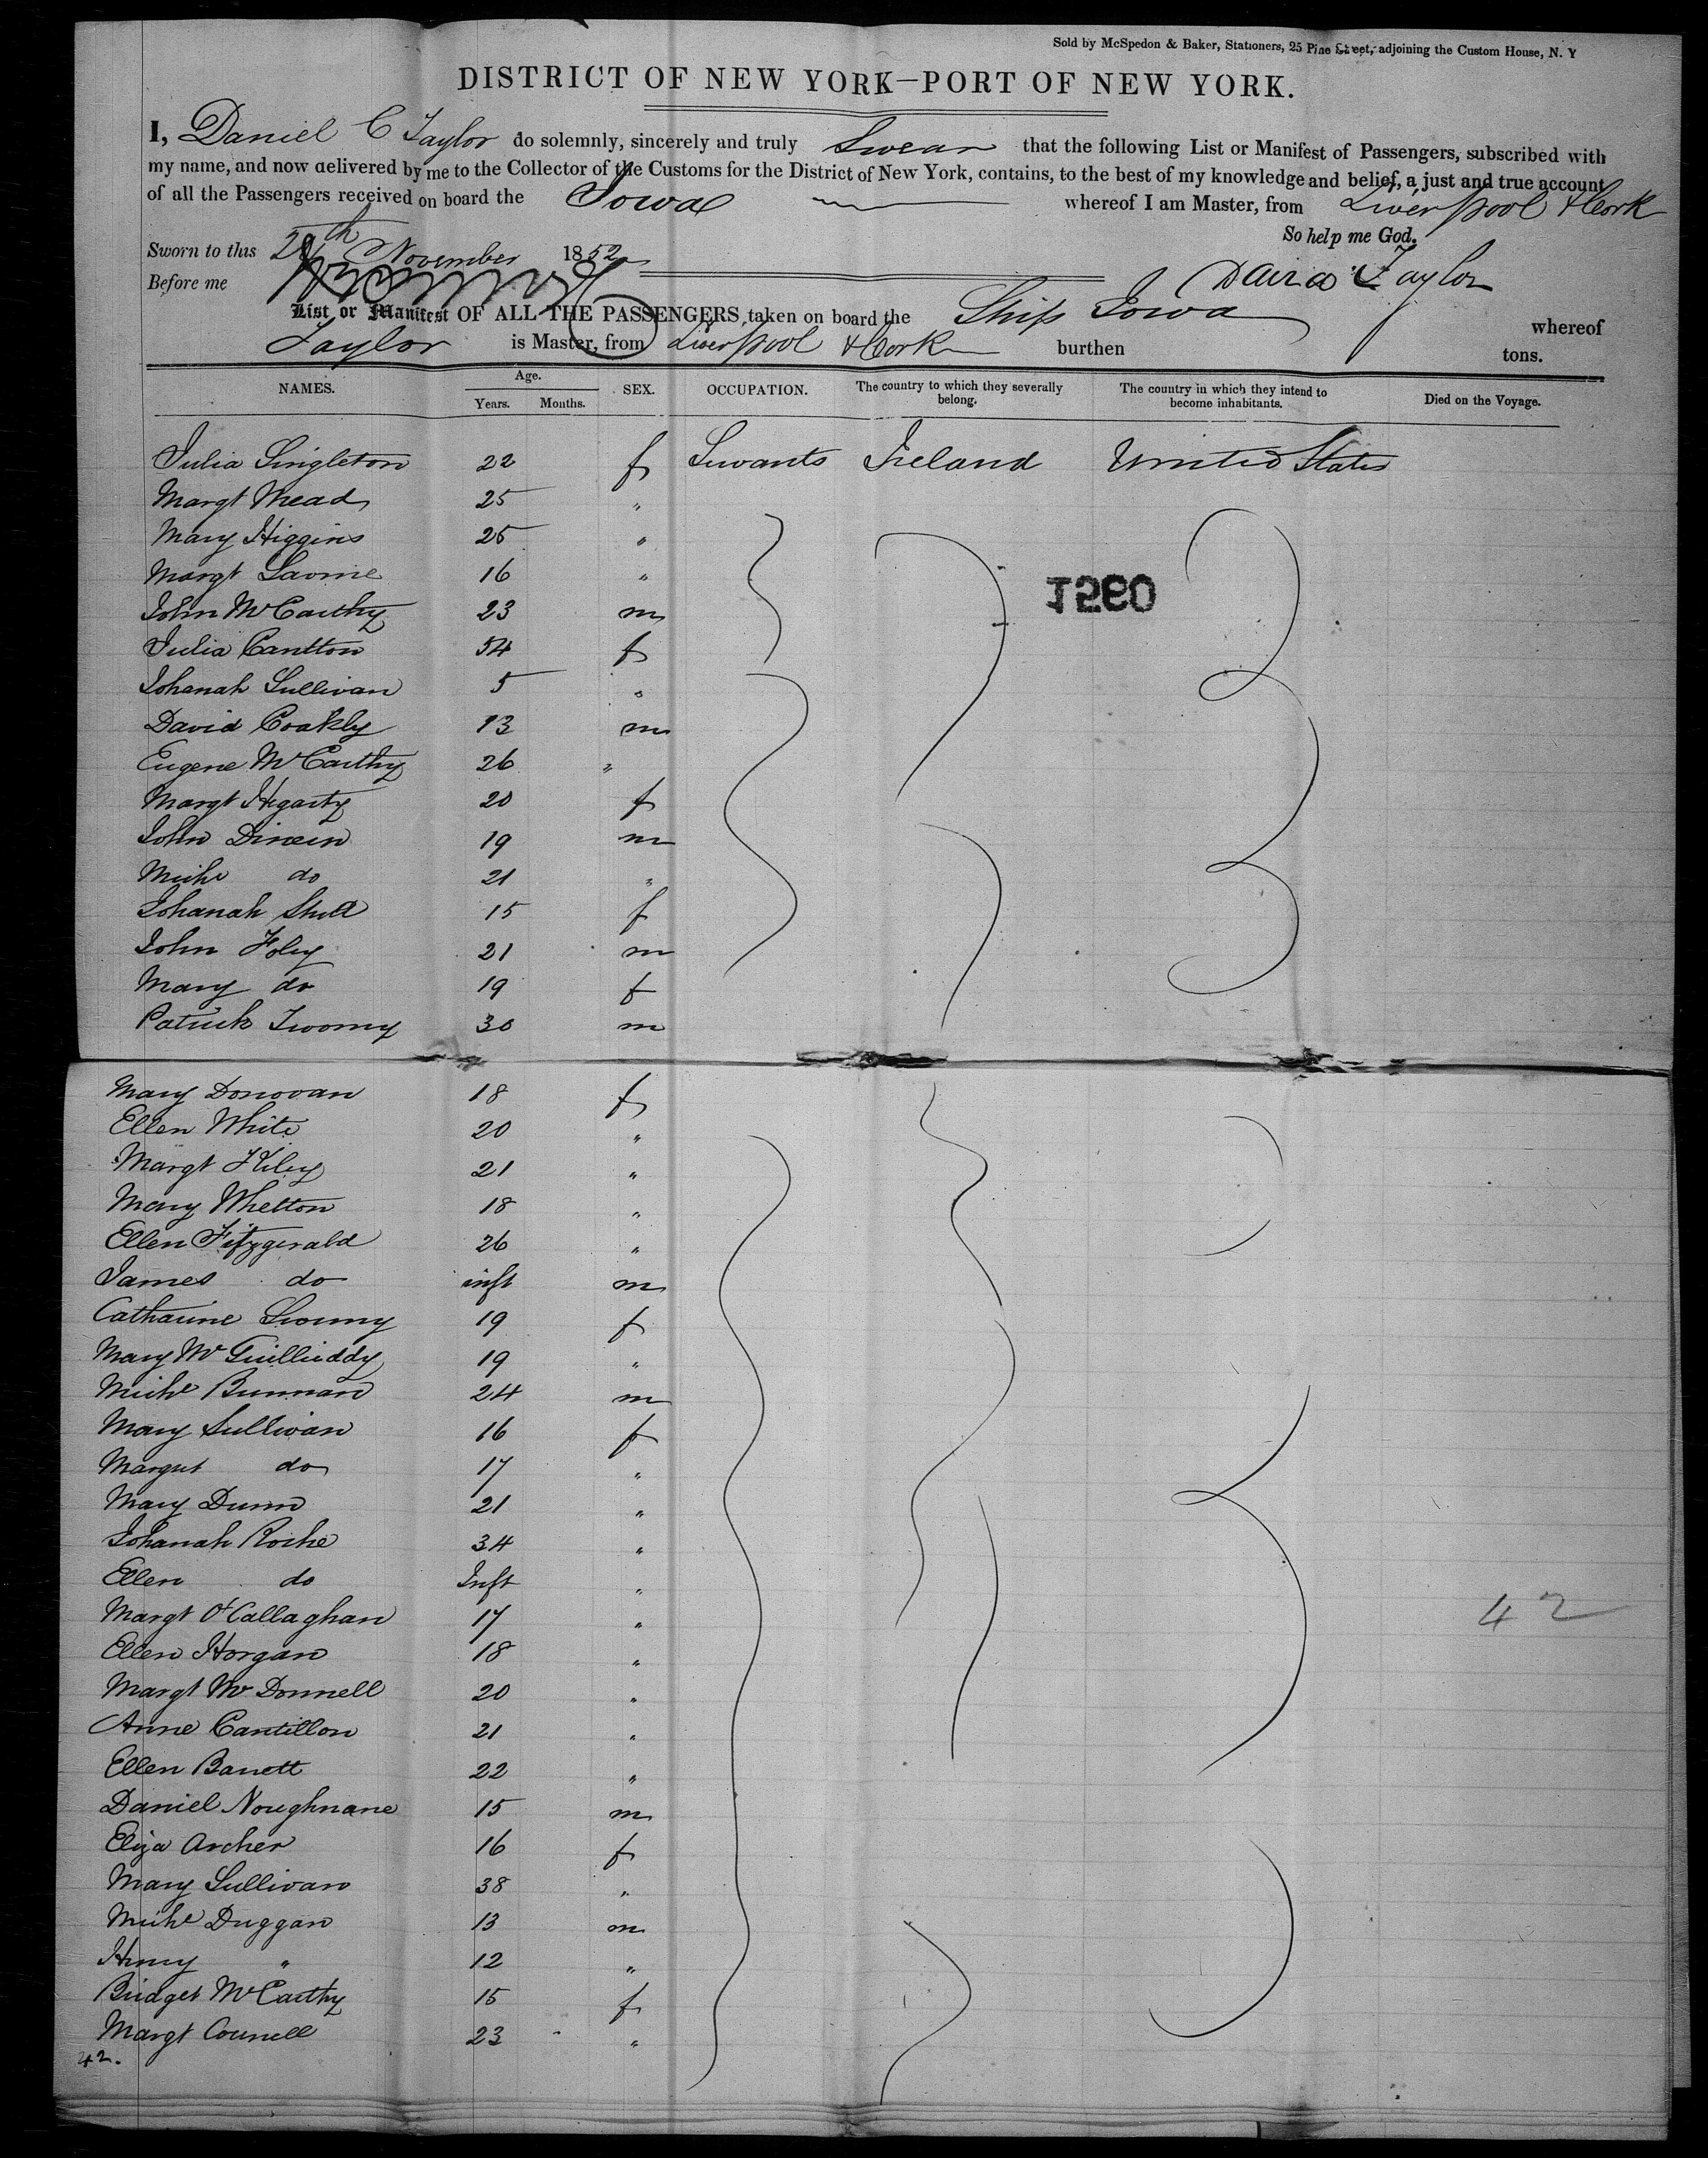 Sold by McSpedon & Baker, Stationers, 25 Pine Street, adjoining the Custom House, N. Y
DISTRICT OF NEW YORK—PORT OF NEW YORK.
I, Daniel C Taylor do solemnly, sincerely and truly Swear that the following List or Manifest of Passengers, subscribed with
my name, and now delivered by me to the Collector of the Customs for the District of New York, contains, to the best of my knowledge and belief, a just and true account
of all the Passengers received on board the Iowa whereof I am Master, from Liverpool & Cork
So help me God.
Sworn to this th November 1852
Taylor
Before me
List or Manifest OF ALL THE PASSENGERS taken on board the Ship Iowa whereof
Taylor is Master, from Liverpool & Cork burthen tons.
NAMES. Age. Years. Months. SEX. OCCUPATION. The country to which they severally belong. The country in which they intend to become inhabitants. Died on the Voyage.
Julia Singleton 22 f Servants Ireland United States
Margt Mead 25 "
Mary Higgins 25 "
Margt 16 "
John McCarthy 23 m
1260
Julia 54 f
Johanah Sullivan 5 "
David Coakly 13 m
Eugene McCarthy 26 "
Margt Hegarty 20 f
John Dineen 19 m
Michl do 21 "
Johanah 15 f
John Foley 21 m
Mary do 19 f
Patrick Twomy 30 m
Mary Donovan 18 f
Ellen White 20 "
Margt Kiley 21 "
Mary Whelton 18 "
Ellen Fitzgerald 26 "
James do inft m
Catharine 19 f
Mary McGuillicuddy 19 "
Michl Brennan 24 m
Mary Sullivan 16 f
Margret do 17 "
Mary Dunn 21 "
Johanah Roche 34 "
Ellen do Inft "
Margt O'Callaghan 17 "
42
Ellen Horgan 18 "
Margt McDonnell 20 "
Anne Cantillon 21 "
Ellen Barrett 22 "
Daniel Noughnane 15 m
Eliza Archer 16 f
Mary Sullivan 38 "
Michl Duggan 13 m
Henry " 12 "
Bridget McCarthy 15 f
Margt Connell 23 "
42.